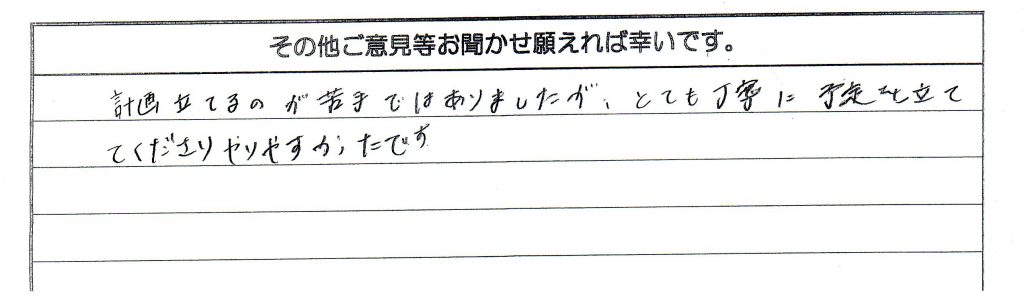 その他ご意見等お聞かせ願えれば幸いです。
計画立てるのが苦手ではありましたが、とても丁寧に予定を立て
てくださりやりやすかったです